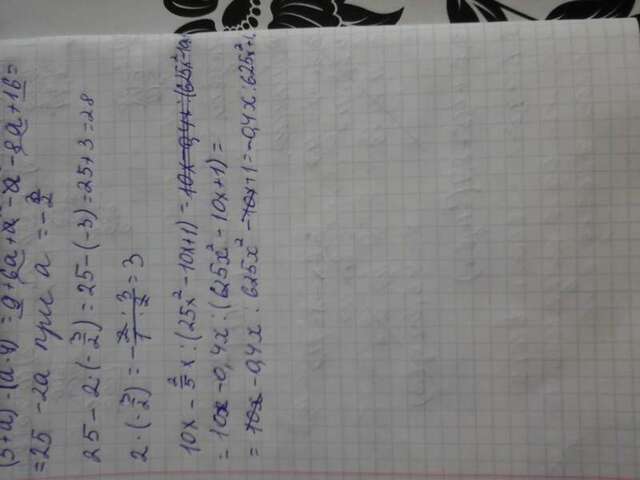 (3+a) - (a-4) = 9+6a+a² - a² - 8a+16=
=25 - 2a при a = -3/2
25 - 2·(-3/2) = 25-(-3) = 25+3 = 28
2·(-3/2) = - 2·3/1·2 = 3
10x - 2/5 x : (25x² - 10x+1) = 10x - 0,4x : (625x² - 10x
= 10x - 0,4x : (625x² - 10x+1) =
= 10x - 0,4x : 625x² - 10x+1 = -0,4x : 625x²+1